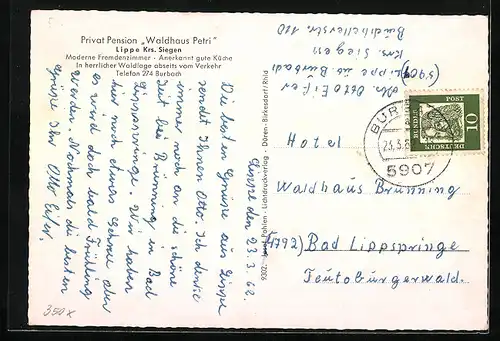 Privat Pension „Waldhaus Petri"
Lippe Krs. Siegen
Moderne Fremdenzimmer - Anerkannt gute Küche
In herrlicher Waldlage abseits vom Verkehr
Telefon 274 Burbach
Lippe den 23.3.62.
Die besten Grüsse aus Lippe
sendet Ihnen Otto. Ich denke
immer noch an die schöne
Zeit bei Brünning in Bad
Lippspringe. Wir haben
hier noch etwas Schnee aber
es wird doch bald Frühling
werden. Nochmals die besten
Grüsse Ihr Otto Eifer.
9202 Pohlen - Lichtdruckverlag - Düren-Birkesdorf/Rhld
Abs. Otto Eifer
(5901) Lippe üb Burbach
Krs. Siegen
110
DEUTSCHE
BUNDESPOST
10
BUR
23.3.6
5907
Hotel
Waldhaus Brünning
(4792) Bad Lippspringe
Teutoburgerwald.
350 x